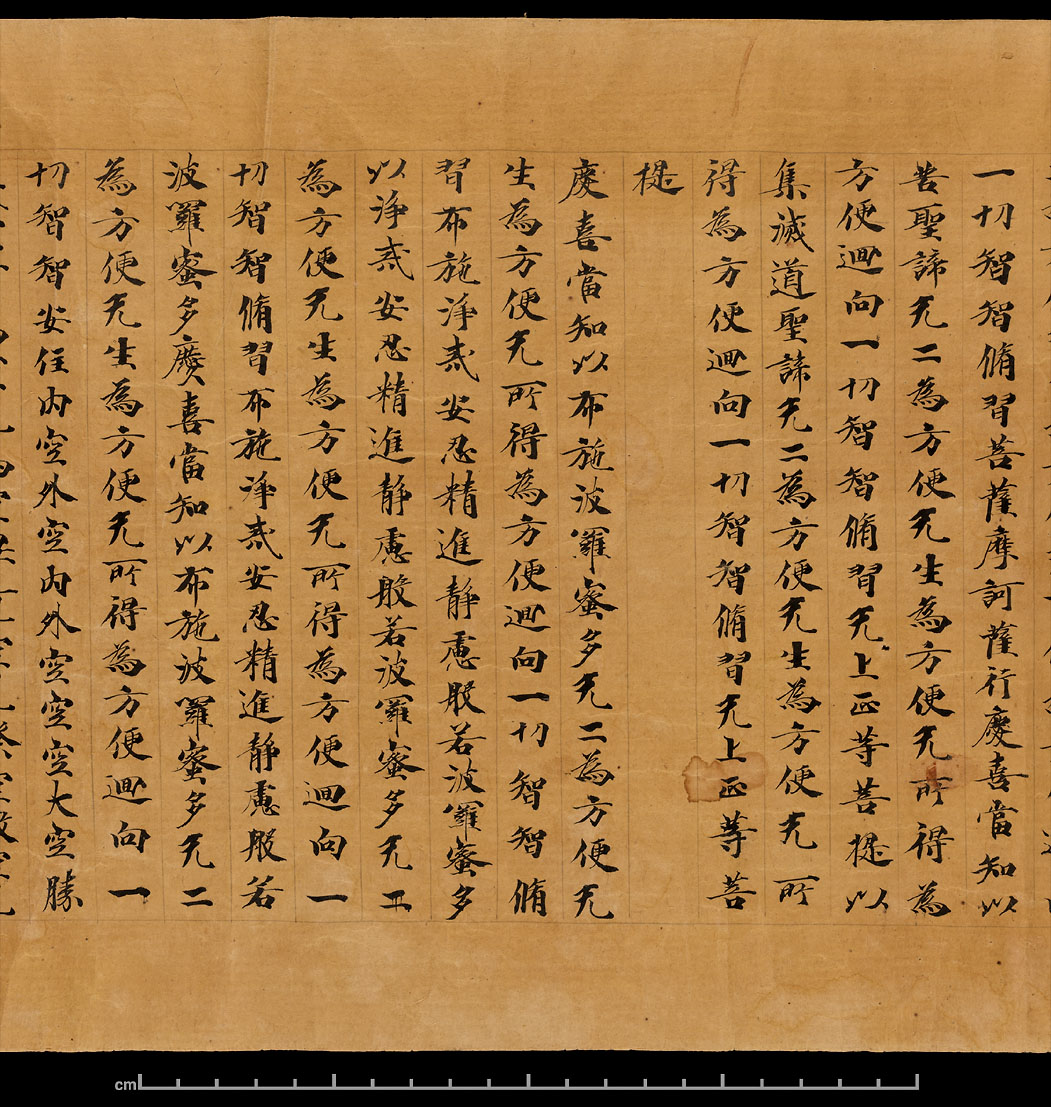 一切智智脩習菩薩摩訶薩行慶喜當知以
苦聖諦无二為方便无生為方便无所得為
方便迴向一切智智脩習无上正等菩提以
集滅道聖諦无二為方便无生為方便无所
得為方便迴向一切智智脩習无上正等菩
提
慶喜當知以布施波羅蜜多无二為方便无
生為方便无所得為方便迴向一切智智脩
習布施淨戒安忍精進靜慮般若波羅蜜多
以淨戒安忍精進靜慮般若波羅蜜多无二
為方便无生為方便无所得為方便迴向一
切智智脩習布施淨戒安忍精進靜慮般若
波羅蜜多慶喜當知以布施波羅蜜多无二
為方便无生為方便无所得為方便迴向一
切智智安住內空外空內外空空空大空勝
cm